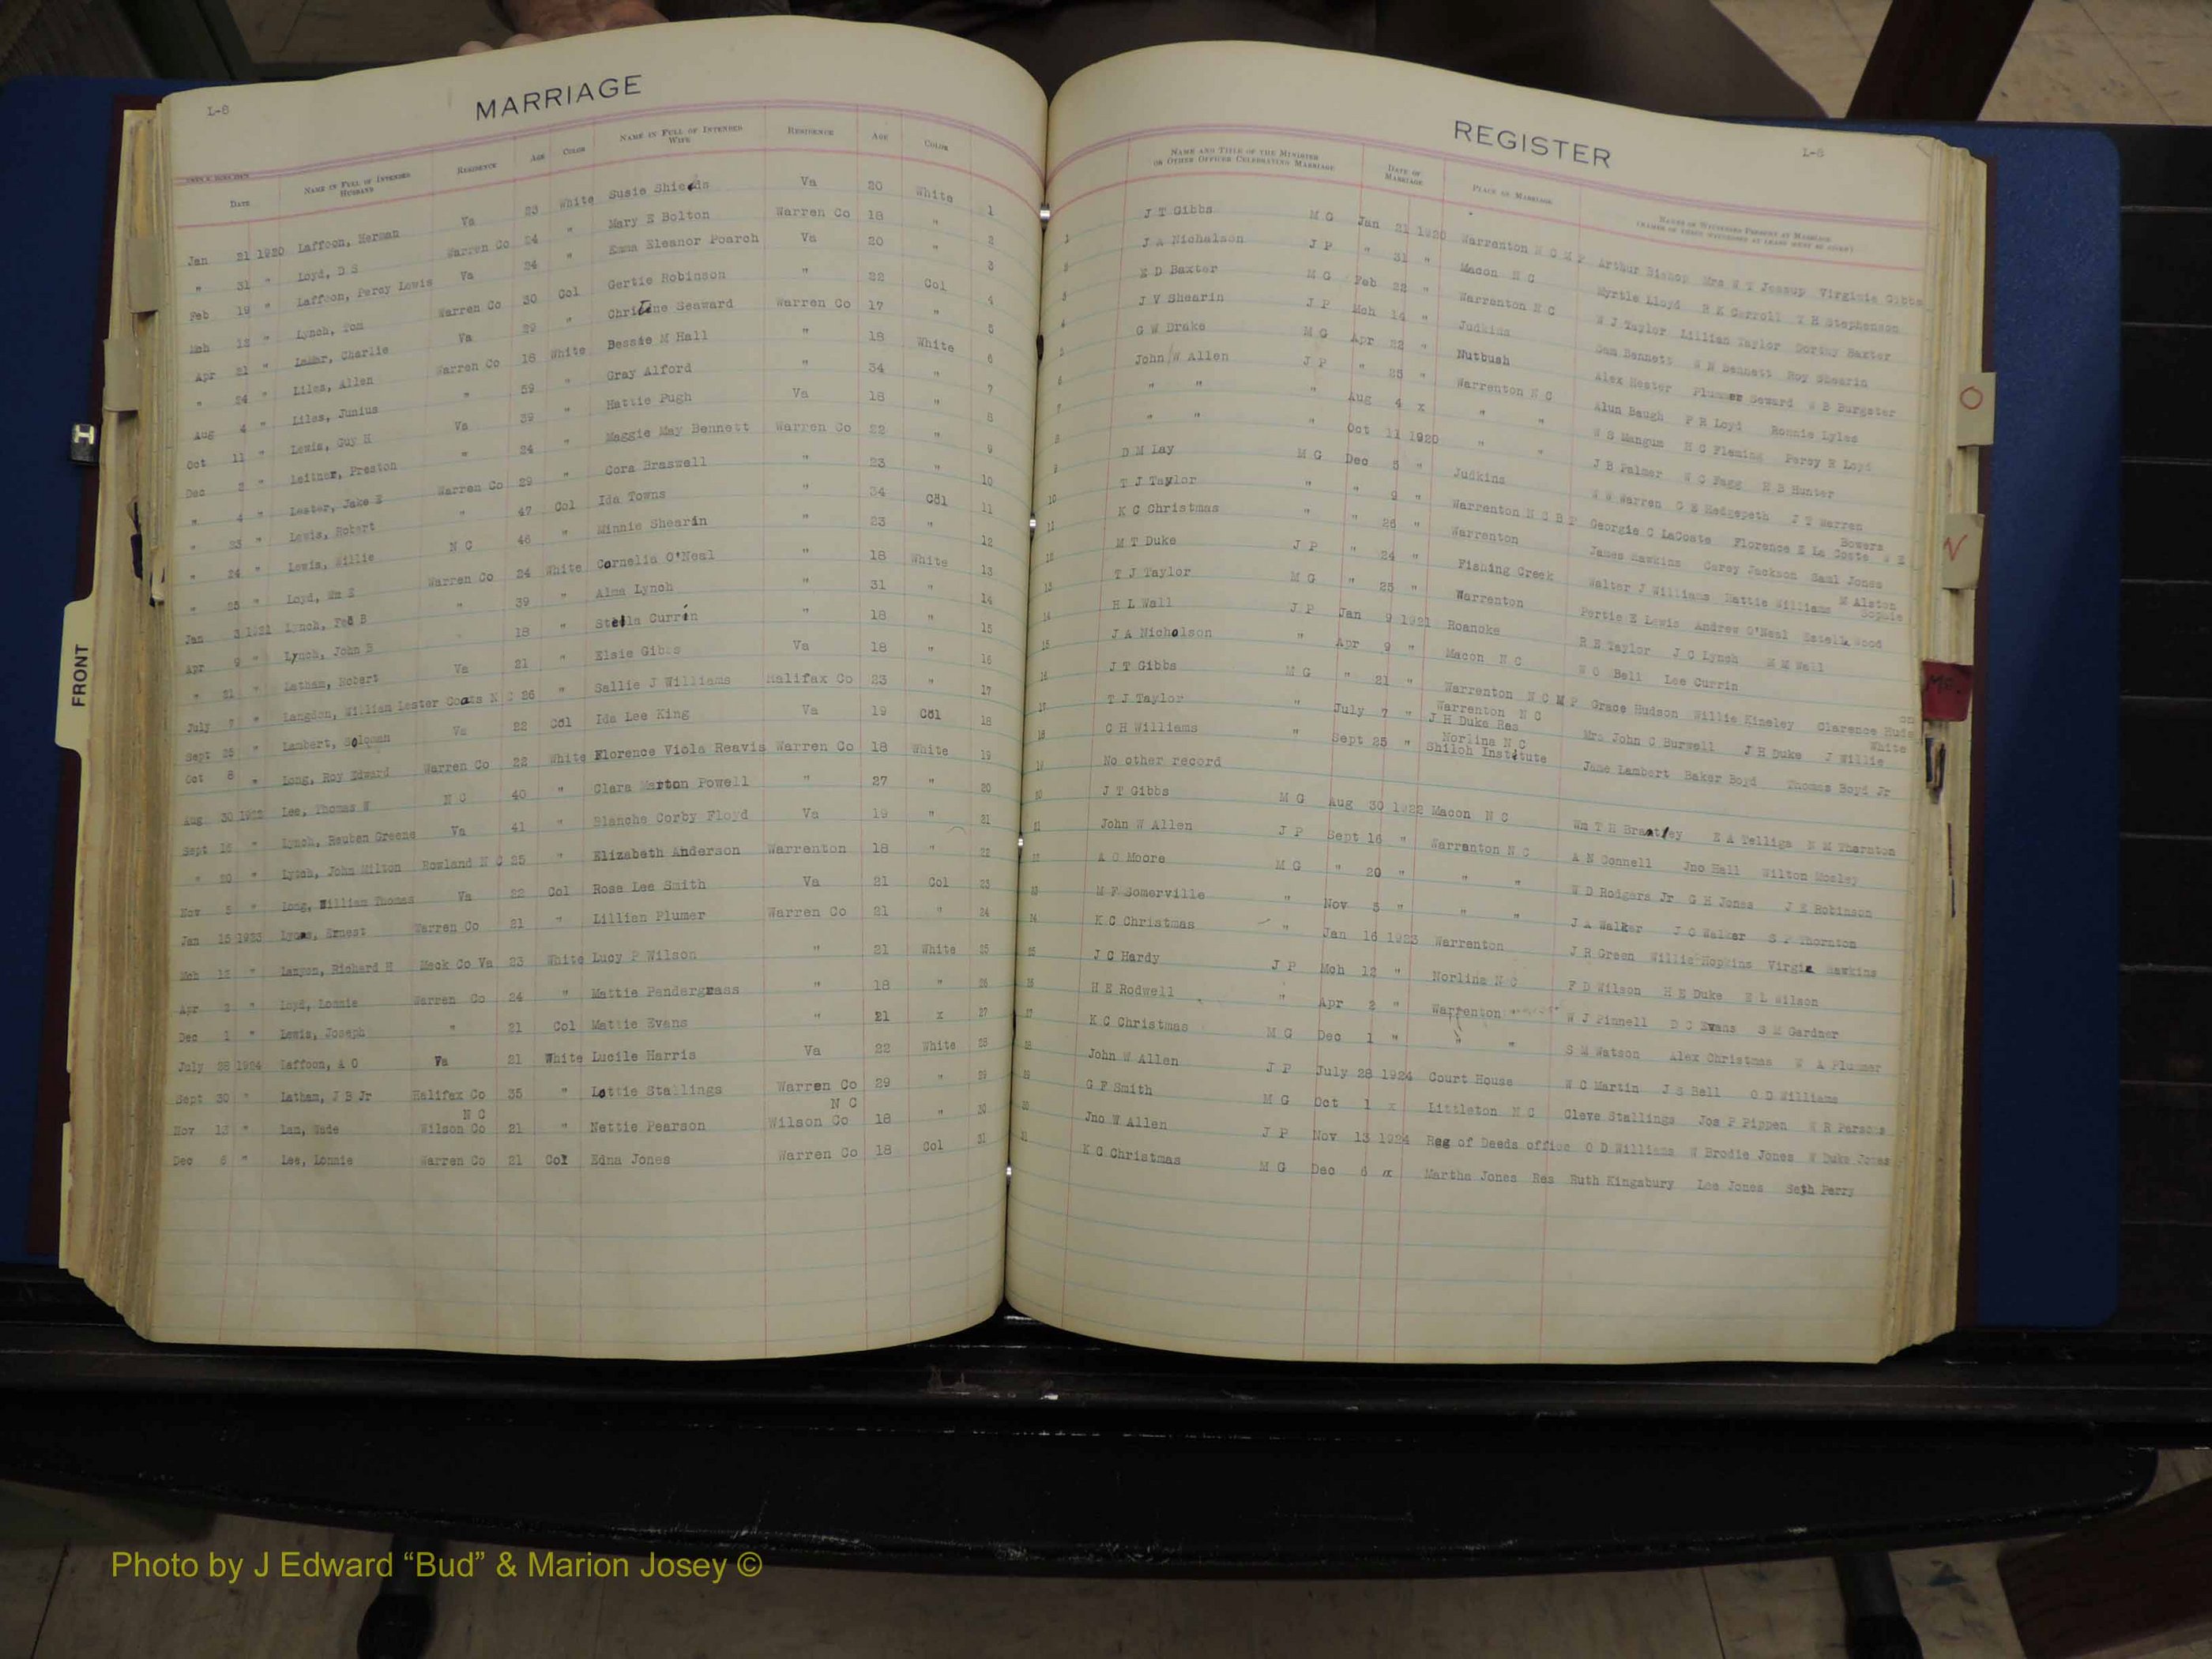 L-8
MARRIAGE
DATE NAME IN FULL OF INTENDED HUSBAND RESIDENCE AGE COLOR NAME IN FULL OF INTENDED WIFE RESIDENCE AGE COLOR
Jan 21 1920 Laffoon, Herman Va 23 White Susie Shields Va 20 White 1
" 31 " Loyd, D S Warren Co 24 " Mary E Bolton Warren Co 18 " 2
Feb 19 " Laffoon, Percy Lewis Va 24 " Emma Eleanor Poarch Va 20 " 3
Mch 13 " Lynch, Tom Warren Co 30 Col Gertie Robinson " 22 Col 4
Apr 21 " LaMar, Charlie Va 29 " Christine Seaward Warren Co 17 " 5
" 24 " Liles, Allen Warren Co 18 White Bessie M Hall " 18 White 6
Aug 4 " Liles, Junius " 59 " Gray Alford " 34 " 7
Oct 11 " Lewis, Guy H Va 39 " Hattie Pugh Va 18 " 8
Dec 2 " Leitner, Preston " 24 " Maggie May Bennett Warren Co 22 " 9
" 4 " Lester, Jake E Warren Co 29 " Cora Braswell " 23 " 10
" 23 " Lewis, Robert " 47 Col Ida Towns " 34 Col 11
" 24 " Lewis, Willie N C 46 " Minnie Shearin " 23 " 12
" 25 " Loyd, Wm E Warren Co 24 White Cornelia O'Neal " 18 White 13
Jan 3 1921 Lynch, B " 39 " Alma Lynch " 31 " 14
Apr 9 " Lynch, John B 18 " Stella Currin " 18 " 15
" 21 " Latham, Robert Va 21 " Elsie Gibbs Va 18 " 16
July 7 " Langdon, William Lester Coats N C 26 " Sallie J Williams Halifax Co 23 " 17
Sept 25 " Lambert, Soloman Va 22 Col Ida Lee King Va 19 Col 18
Oct 8 " Long, Roy Edward Warren Co 22 White Florence Viola Reavis Warren Co 18 White 19
Aug 30 1922 Lee, Thomas W N C 40 " Clara Marton Powell " 27 " 20
Sept 16 " Lynch, Reuben Greene Va 41 " Blanche Corby Floyd Va 19 " 21
" 20 " Lynch, John Milton Rowland N C 25 " Elizabeth Anderson Warrenton 18 " 22
Nov 5 " Long, William Thomas Va 22 Col Rosa Lee Smith Va 21 Col 23
Jan 15 1923 Ernest Warren Co 21 " Lillian Plumer Warren Co 21 " 24
Mch 12 " Richard H Meck Co Va 23 White Lucy P Wilson " 21 White 25
Apr 2 " Loyd, Lonnie Warren Co 24 " Mattie Pendergrass " 18 " 26
Dec 1 " Lewis, Joseph " 21 Col Mattie Evans " 21 x 27
July 28 1924 Laffoon, A G Va 21 White Lucile Harris Va 22 White 28
Sept 30 " Latham, J B Jr Halifax Co N C 35 " Lottie Stallings Warren Co N C 29 " 29
Nov 13 " Lam, Wade Wilson Co 21 " Nettie Pearson Wilson Co 18 " 30
Dec 6 " Lee, Lonnie Warren Co 21 Col Edna Jones Warren Co 18 Col 31
REGISTER
L-8
NAME AND TITLE OF THE MINISTER OR OTHER OFFICER CELEBRATING MARRIAGE DATE OF MARRIAGE PLACE OF MARRIAGE NAMES OF WITNESSES PRESENT AT MARRIAGE
1 J T Gibbs M G Jan 21 1920 Warrenton N C M P Arthur Bishop Mrs W T Jessup Virginia Gibbs
2 J A Nicholson J P " 31 " Macon N C Myrtle Lloyd R K Carroll T H Stephenson
3 E D Baxter M G Feb 22 " Warrenton N C W J Taylor Lillian Taylor Dorthy Baxter
4 J V Shearin J P Mch 14 " Judkins Sam Bennett W N Bennett Roy Shearin
5 G W Drake M G Apr 22 " Nutbush Alex Hester Plummer Seward W B Burgster
6 John W Allen J P " 25 " Warrenton N C Alun Baugh P R Loyd Ronnie Lyles
7 " " " Aug 4 x " " W S Mangum H C Fleming Percy R Loyd
8 " " " Oct 11 1920 " " J B Palmer W C Fagg H B Hunter
9 D M Lay M G Dec 5 " Judkins W W Warren C E Hedgepeth J T Warren
10 T J Taylor " " 9 " Warrenton N C B P Georgie C LaCoste Florence E La Coste W E Bowers
11 K C Christmas " " 26 " Warrenton James Hawkins Carey Jackson Saml Jones
12 M T Duke J P " 24 " Fishing Creek Walter J Williams Mattie Williams M Alston
13 T J Taylor M G " 25 " Warrenton Pertie E Lewis Andrew O'Neal Estella Wood Sophie
14 H L Wall J P Jan 9 1921 Roanoke R E Taylor J C Lynch M M Wall
15 J A Nicholson " Apr 9 " Macon N C W O Bell Lee Currin
16 J T Gibbs M G " 21 " Warrenton N C M P Grace Hudson Willie Kinsley Clarence Hudson
17 T J Taylor " July 7 " Warrenton N C J H Duke Res Mrs John C Burwell J H Duke J Willie White
18 C H Williams " Sept 25 " Norlina N C Shiloh Institute Jane Lambert Baker Boyd Thomas Boyd Jr
19 No other record
20 J T Gibbs M G Aug 30 1922 Macon N C Wm T H Brantley E A Telliga N M Thornton
21 John W Allen J P Sept 16 " Warrenton N C A N Connell Jno Hall Wilton Mosley
22 A O Moore M G " 20 " " " W D Rodgers Jr G H Jones J E Robinson
23 M F Somerville " Nov 5 " " " J A Walker J O Walker S P Thornton
24 K C Christmas " Jan 16 1923 Warrenton J R Green Willie Hopkins Virgia Hawkins
25 J C Hardy J P Mch 12 " Norlina N C F D Wilson H E Duke E L Wilson
26 H E Rodwell " Apr 2 " Warrenton W J Pinnell D C Evans S M Gardner
27 K C Christmas M G Dec 1 " " " S M Watson Alex Christmas W A Plummer
28 John W Allen J P July 28 1924 Court House W C Martin J S Bell O D Williams
29 G F Smith M G Oct 1 x Littleton N C Cleve Stallings Jos P Pippen W R Parsons
30 Jno W Allen J P Nov 13 1924 Reg of Deeds office O D Williams W Brodie Jones W Duke Jones
31 K C Christmas M G Dec 6 x Martha Jones Res Ruth Kingsbury Lee Jones Seth Perry
FRONT
O
N
Mc
Photo by J Edward “Bud” & Marion Josey ©